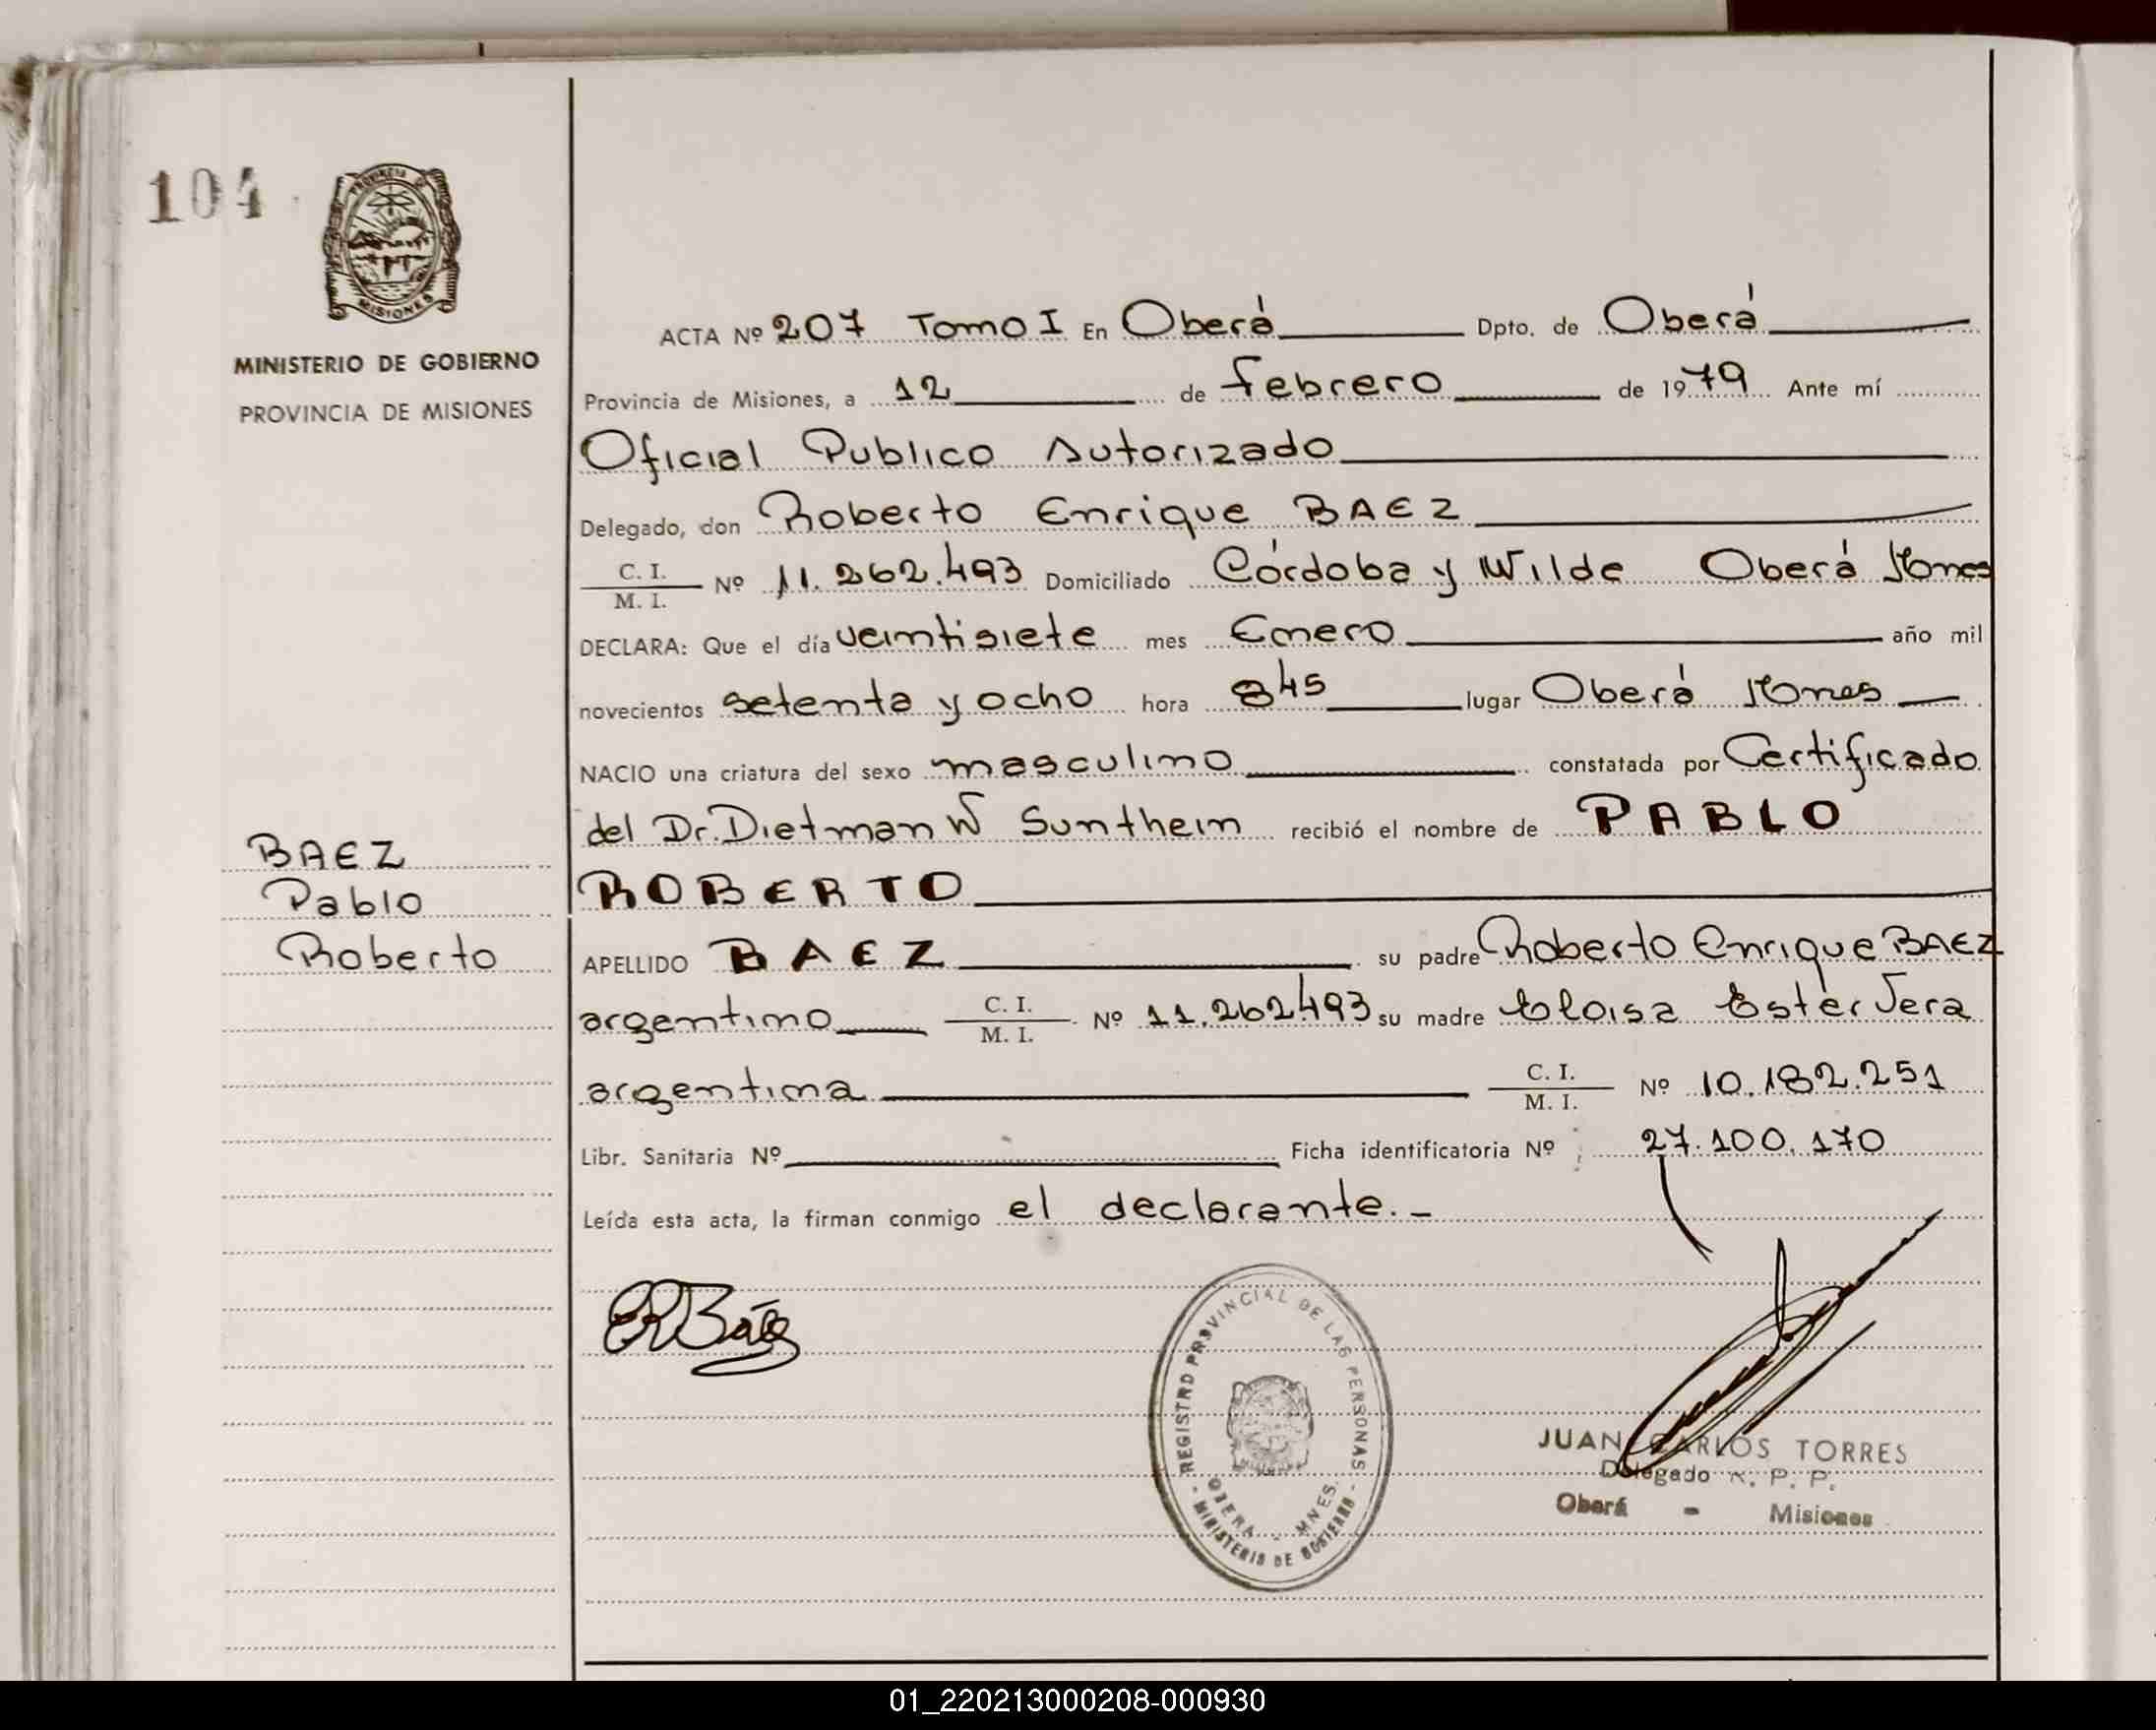 104
PROVINCIA D
MISIONES
MINISTERIO DE GOBIERNO
PROVINCIA DE MISIONES
ACTA Nº 207 Tomo I En Oberá Dpto. de Oberá
Provincia de Misiones, a 12 de febrero de 1979 Ante mí
Oficial Publico Autorizado
Delegado, don Roberto Enrique BAEZ
C. I.
M. I. Nº 11.262.493 Domiciliado Córdoba y Wilde Oberá Mnes
DECLARA: Que el día veintisiete mes Enero año mil
novecientos setenta y ocho hora 8 45 lugar Oberá Mnes
NACIO una criatura del sexo masculino constatada por Certificado
del Dr. Dietman W Sunthein recibió el nombre de PABLO
ROBERTO
BAEZ
Pablo
Roberto
APELLIDO BAEZ su padre Roberto Enrique BAEZ
argentino C. I. M. I. Nº 11.262493 su madre Eloisa Ester Vera
argentina C. I. M. I. Nº 10.182.251
Libr. Sanitaria Nº Ficha identificatoria Nº 27.100.170
Leída esta acta, la firman conmigo el declarante.-
Báez
REGISTRO PROVINCIAL DE LAS PERSONAS
OBERA - MNES.
- MINISTERIO DE GOBIERNO -
JUAN CARLOS TORRES
Delegado R. P. P.
Oberá - Misiones
01_220213000208-000930